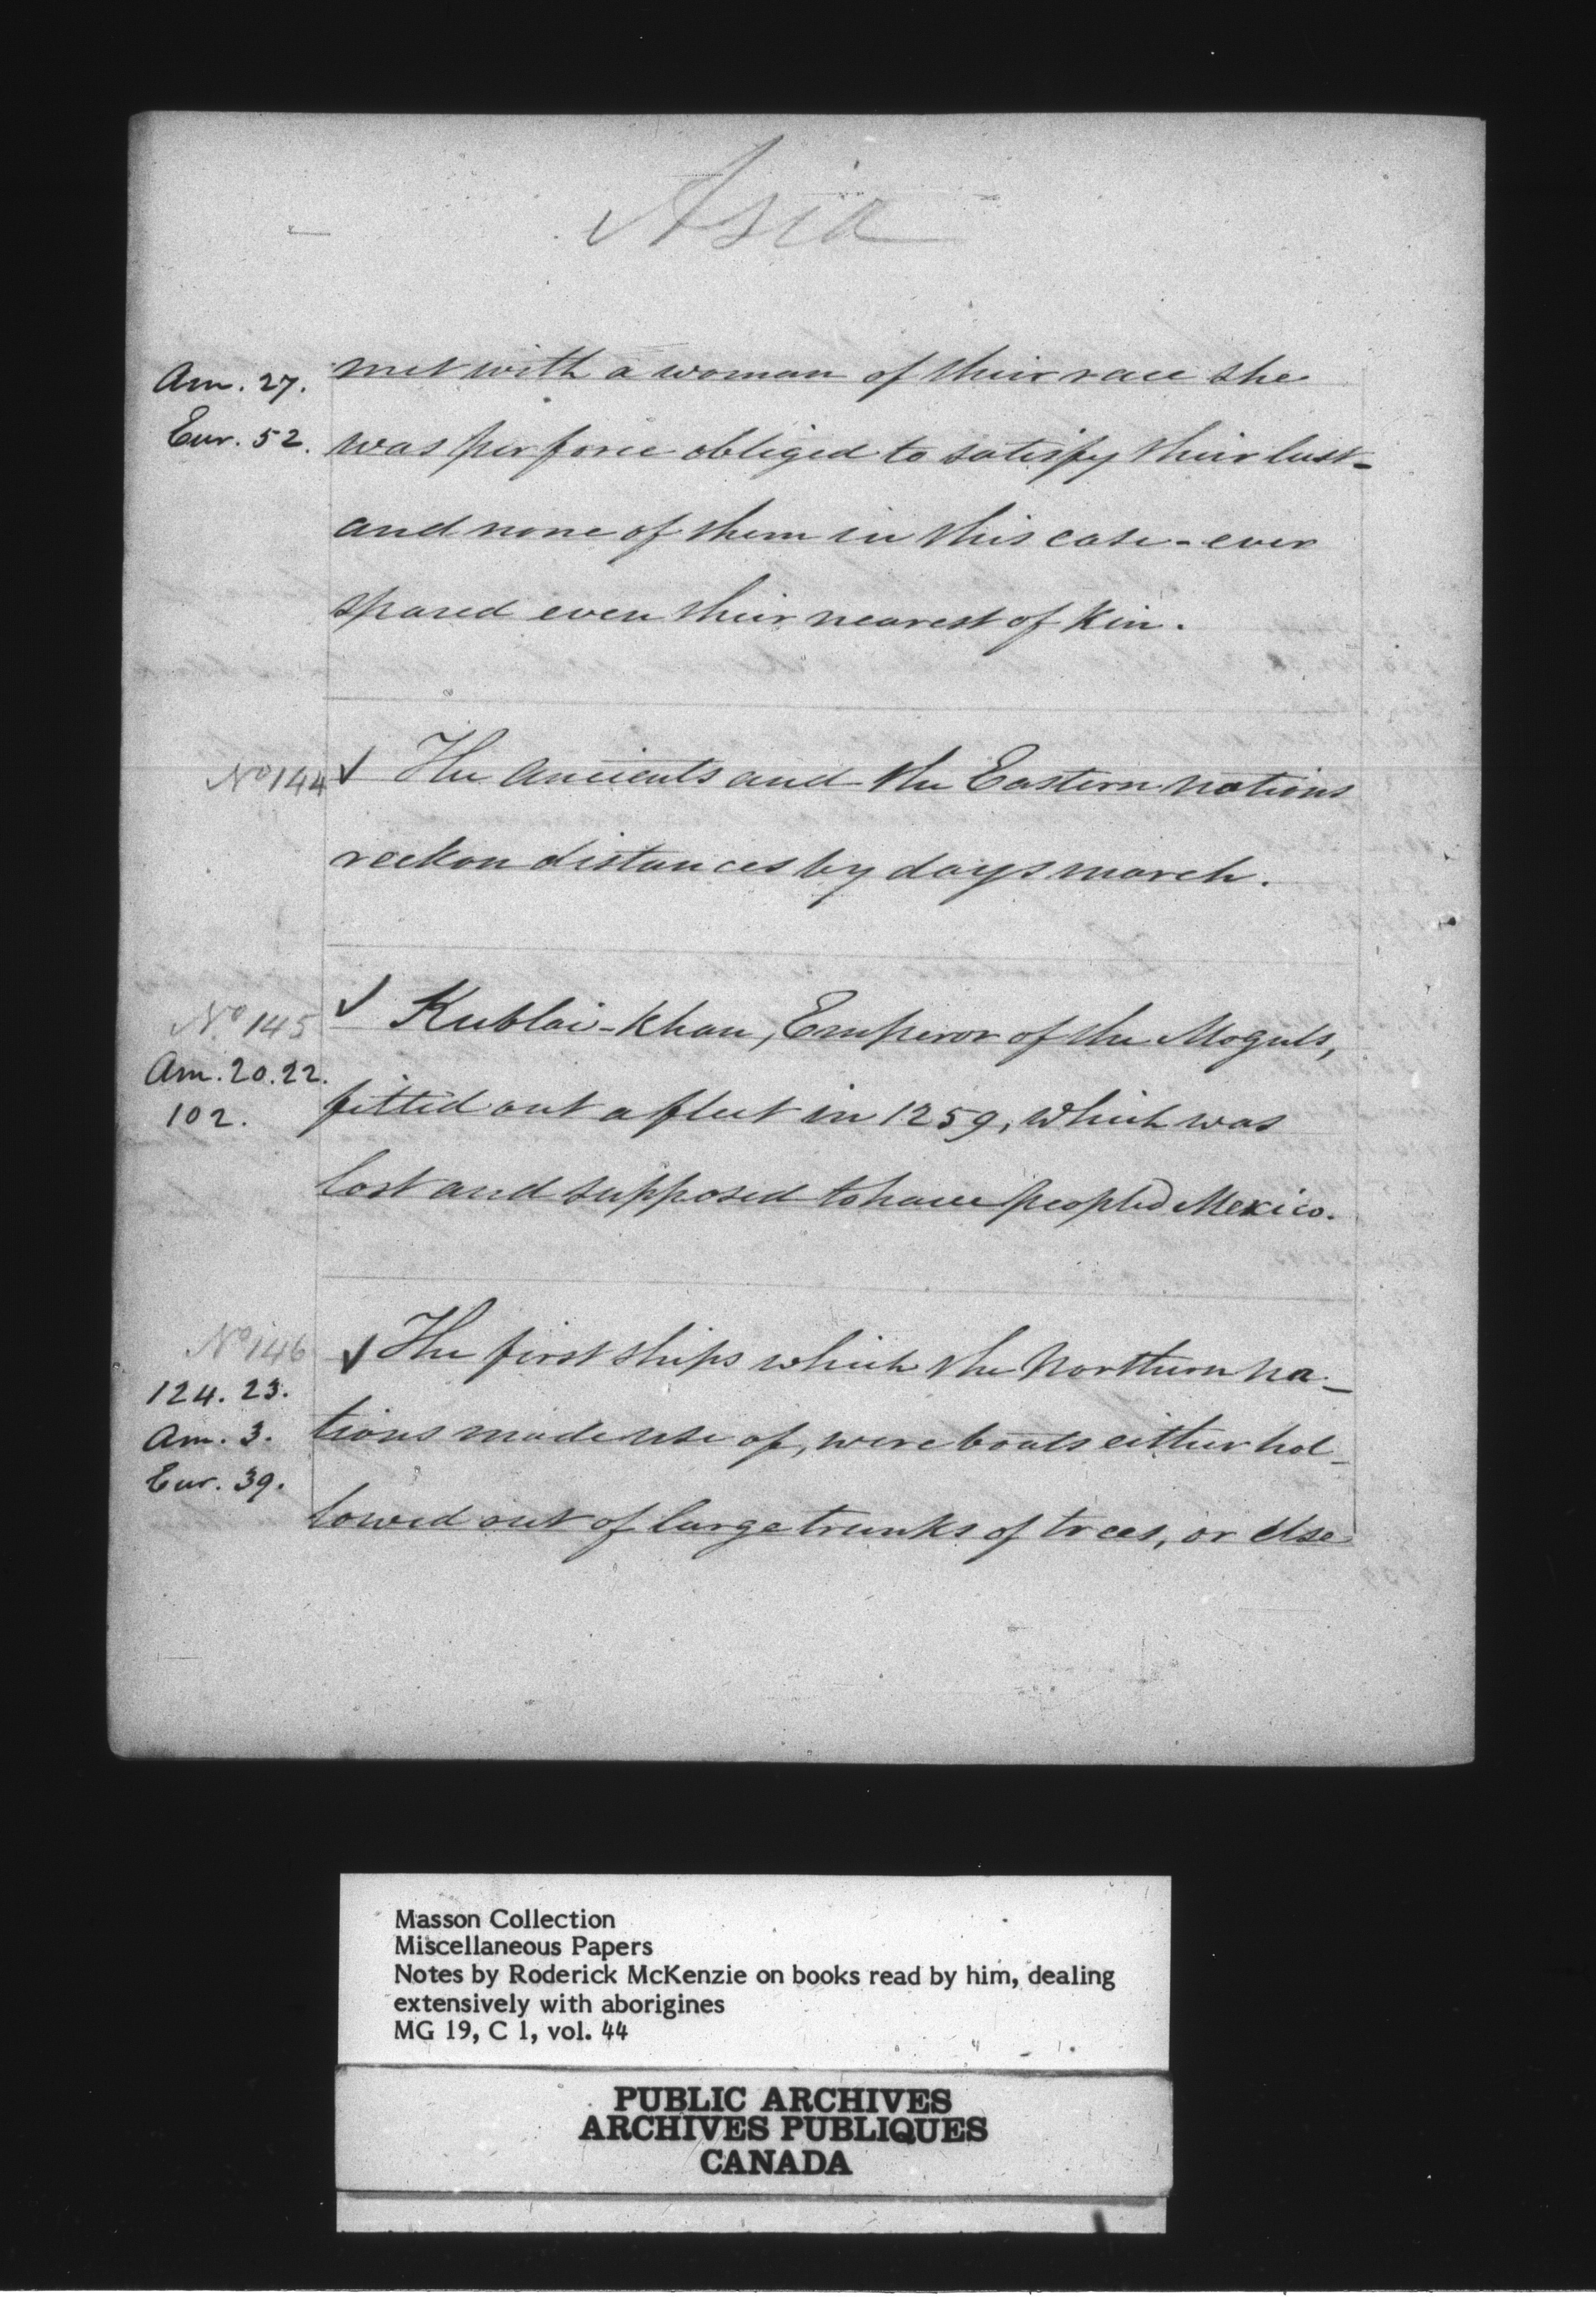 Asia
Am. 27.
Eur. 52.
met with a woman of their race she
was per force obliged to satisfy their lust -
and none of them in this case - ever
spared even their nearest of Kin.
No 144
✓ The Ancients and the Eastern nations
reckon distances by days march.
No 145
Am. 20. 22.
102.
✓ Kublai-Khan, Emperor of the Moguls,
fitted out a fleet in 1259, which was
lost and supposed to have peopled Mexico.
No 146
124. 23.
Am. 3.
Eur. 39.
✓ The first ships which the Northern na-
tions made use of, were boats either hol-
lowed out of large trunks of trees, or else
Masson Collection
Miscellaneous Papers
Notes by Roderick McKenzie on books read by him, dealing
extensively with aborigines
MG 19, C 1, vol. 44
PUBLIC ARCHIVES
ARCHIVES PUBLIQUES
CANADA